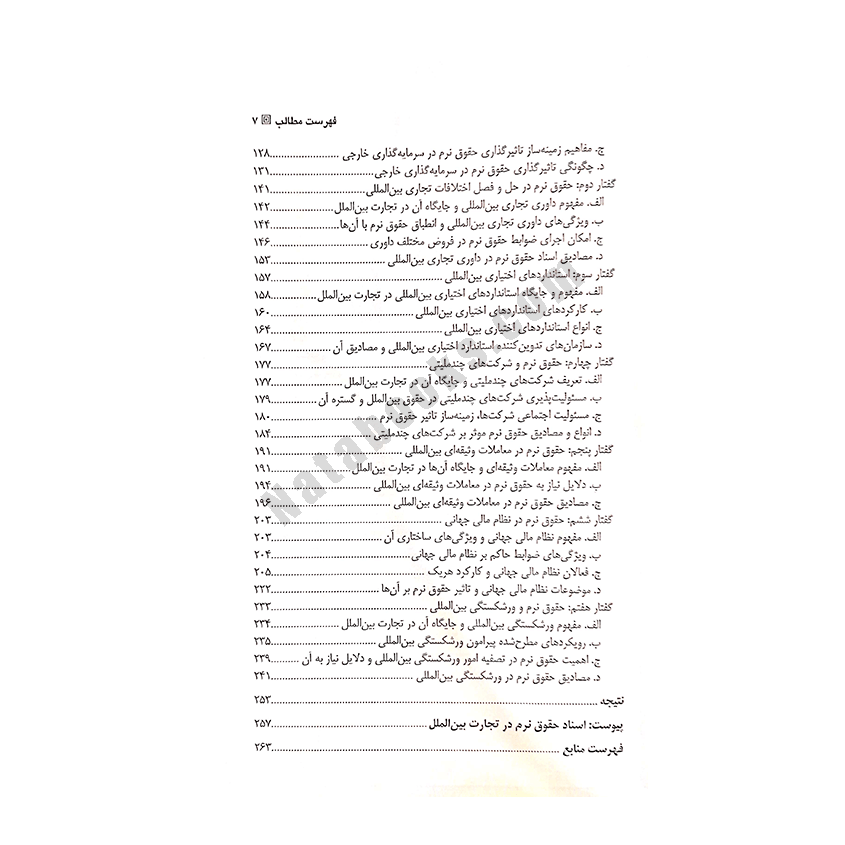 فهرست مطالب ۷
ج. مفاهیم زمینه‌ساز تاثیرگذاری حقوق نرم در سرمایه‌گذاری خارجی ........................ ۱۲۸
د. چگونگی تاثیرگذاری حقوق نرم در سرمایه‌گذاری خارجی ........................ ۱۳۱
گفتار دوم: حقوق نرم در حل و فصل اختلافات تجاری بین‌المللی ........................ ۱۴۱
الف. مفهوم داوری تجاری بین‌المللی و جایگاه آن در تجارت بین‌الملل ........................ ۱۴۲
ب. ویژگی‌های داوری تجاری بین‌المللی و انطباق حقوق نرم با آن‌ها ........................ ۱۴۴
ج. امکان اجرای ضوابط حقوق نرم در فروض مختلف داوری ........................ ۱۴۶
د. مصادیق اسناد حقوق نرم در داوری تجاری بین‌المللی ........................ ۱۵۳
گفتار سوم: استانداردهای اختیاری بین‌المللی ........................ ۱۵۷
الف. مفهوم و جایگاه استانداردهای اختیاری بین‌المللی در تجارت بین‌الملل ........................ ۱۵۸
ب. کارکردهای استانداردهای اختیاری بین‌المللی ........................ ۱۶۰
ج. انواع استانداردهای اختیاری بین‌المللی ........................ ۱۶۴
د. سازمان‌های تدوین‌کننده استاندارد اختیاری بین‌المللی و مصادیق آن ........................ ۱۶۷
گفتار چهارم: حقوق نرم و شرکت‌های چندملیتی ........................ ۱۷۷
الف. تعریف شرکت‌های چندملیتی و جایگاه آن در تجارت بین‌الملل ........................ ۱۷۷
ب. مسئولیت‌پذیری شرکت‌های چندملیتی در حقوق بین‌الملل و گستره آن ........................ ۱۷۹
ج. مسئولیت اجتماعی شرکت‌ها، زمینه‌ساز تاثیر حقوق نرم ........................ ۱۸۰
د. انواع و مصادیق حقوق نرم موثر بر شرکت‌های چندملیتی ........................ ۱۸۴
گفتار پنجم: حقوق نرم در معاملات وثیقه‌ای بین‌المللی ........................ ۱۹۱
الف. مفهوم معاملات وثیقه‌ای و جایگاه آن‌ها در تجارت بین‌الملل ........................ ۱۹۱
ب. دلایل نیاز به حقوق نرم در معاملات وثیقه‌ای بین‌المللی ........................ ۱۹۴
ج. مصادیق حقوق نرم در معاملات وثیقه‌ای بین‌المللی ........................ ۱۹۶
گفتار ششم: حقوق نرم در نظام مالی جهانی ........................ ۲۰۳
الف. مفهوم نظام مالی جهانی و ویژگی‌های ساختاری آن ........................ ۲۰۳
ب. ویژگی‌های ضوابط حاکم بر نظام مالی جهانی ........................ ۲۰۴
ج. فعالان نظام مالی جهانی و کارکرد هریک ........................ ۲۰۵
د. موضوعات نظام مالی جهانی و تاثیر حقوق نرم بر آن‌ها ........................ ۲۲۲
گفتار هفتم: حقوق نرم و ورشکستگی بین‌المللی ........................ ۲۳۳
الف. مفهوم ورشکستگی بین‌المللی و جایگاه آن در تجارت بین‌الملل ........................ ۲۳۴
ب. رویکردهای مطرح‌شده پیرامون ورشکستگی بین‌المللی ........................ ۲۳۵
ج. اهمیت حقوق نرم در تصفیه امور ورشکستگی بین‌المللی و دلایل نیاز به آن ........................ ۲۳۹
د. مصادیق حقوق نرم در ورشکستگی بین‌المللی ........................ ۲۴۱
نتیجه ........................ ۲۵۳
پیوست: اسناد حقوق نرم در تجارت بین‌الملل ........................ ۲۵۷
فهرست منابع ........................ ۲۶۳
Natabooks.com